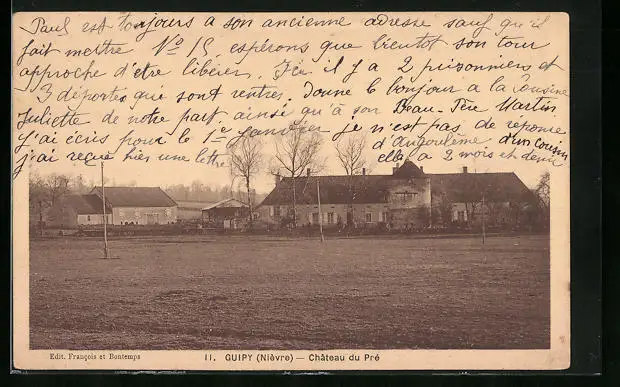 Paul est toujours a son ancienne adresse sauf qu'il
fait mettre No 15, espérons que bientot son tour
approche d'être libérer. Ici il y a 2 prisonniers et
3 déportés qui sont rentrés. Donne le bonjour a la Cousine
Juliette de notre part, ainsi qu'à son Beau-Père Martin
j'ai écris pour le 1er Janvier je n'est pas de réponse
j'ai reçue hier une lettre d'Angoulème d'un Cousin
elle a 2 mois et demi
Edit. François et Bontemps
11. GUIPY (Nièvre) — Château du Pré